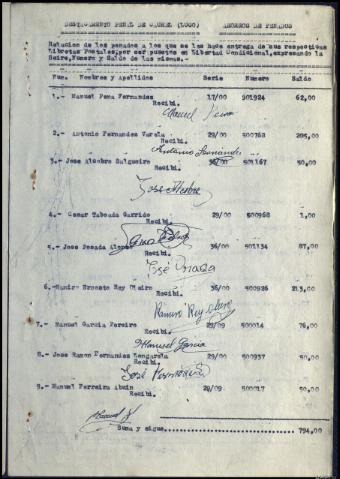 DESTACAMENTO PENAL DE (LUGO) AHORROS DE PENADOS
Relacion de los penados a los que se les hace entrega de sus respectivas
Libretas Postales, por ser puestos en Libertad Condicional, expresando la
Serie, Numero y Saldo de las mismas.-
Num. Nombres y Apellidos Serie Número Saldo
1.- Manuel Pena Fernandez 17/00 901924 62,00
Recibi.
Manuel Pena
2.- Antonio Fernandez Varela 29/00 500768 205,00
Recibi.
Antonio Fernández
3.- Jose Alcobre Salgueiro 36/00 501167 50,00
Recibi.
Jose Alcobre
4.- Cesar Taboada Garrido 29/00 500968 1,00
Recibi.
5.- Jose Posada 36/00 501134 87,00
Recibi.
José Posada
6.- Ramiro Ernesto Rey Otero 36/00 500926 213,00
Recibi.
Ramiro Rey Otero
7.- Manuel Garcia Pereiro 29/09 500014 76,00
Recibi.
Manuel Garcia
8.- Jose Ramon Fernandez 29/00 500937 50,00
Recibi.
José Fernandez
9.- Manuel Ferreira Abuin 29/09 500017 50,00
Recibi.
Manuel
Suma y sigue........................ 794,00